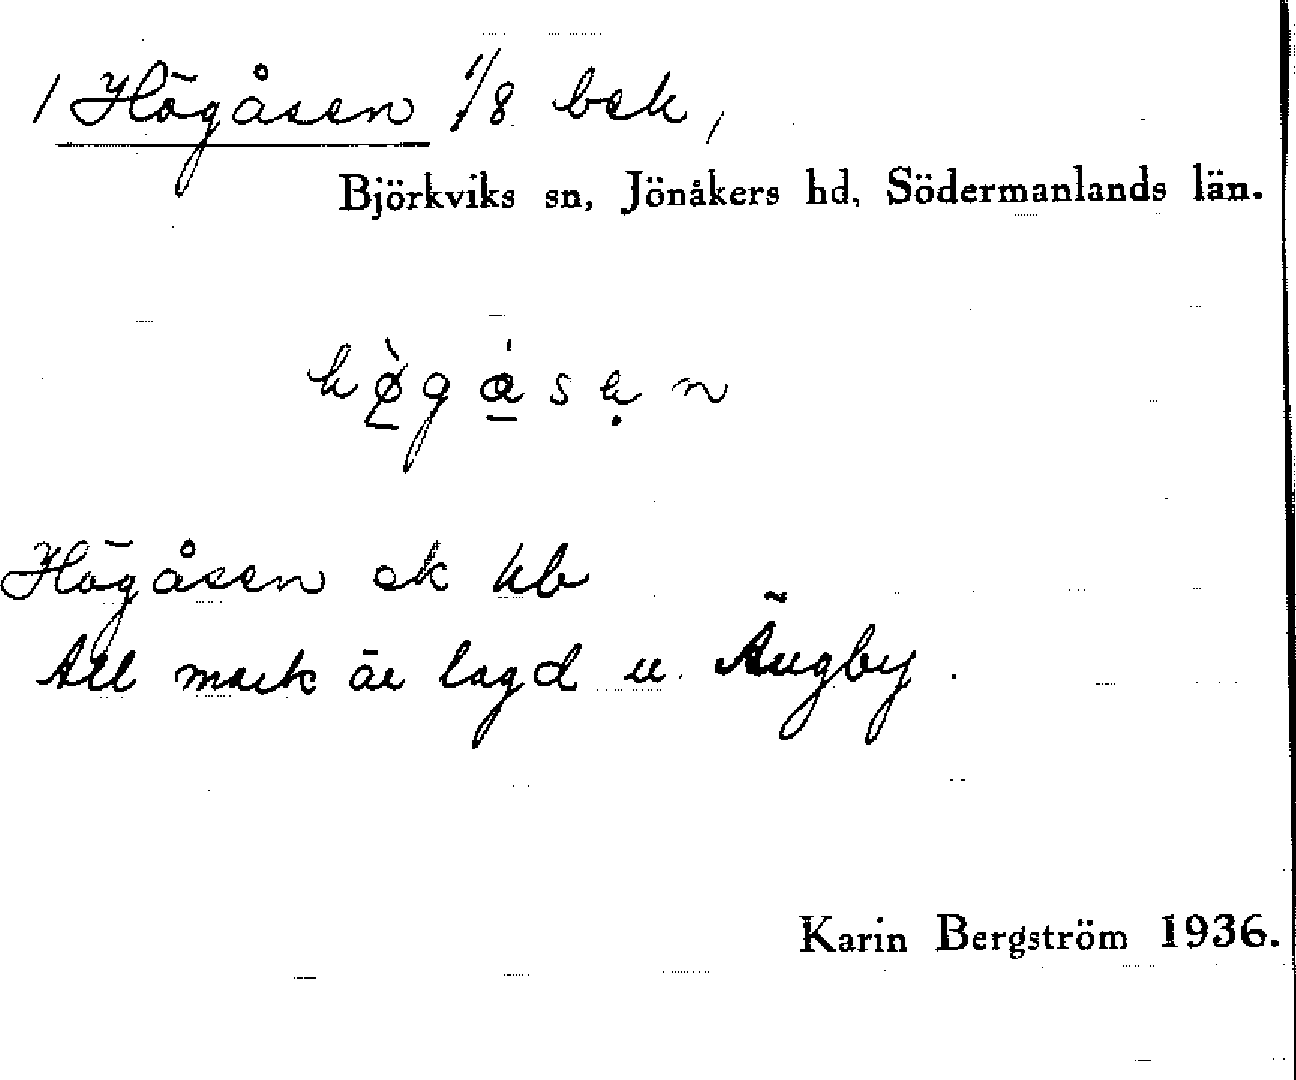 1 Högåsen 1/8 bsk,
Björkviks sn, Jönåkers hd, Södermanlands län.
Högåsen ek kb
All mark är lagd u. Ängby.
Karin Bergström 1936.